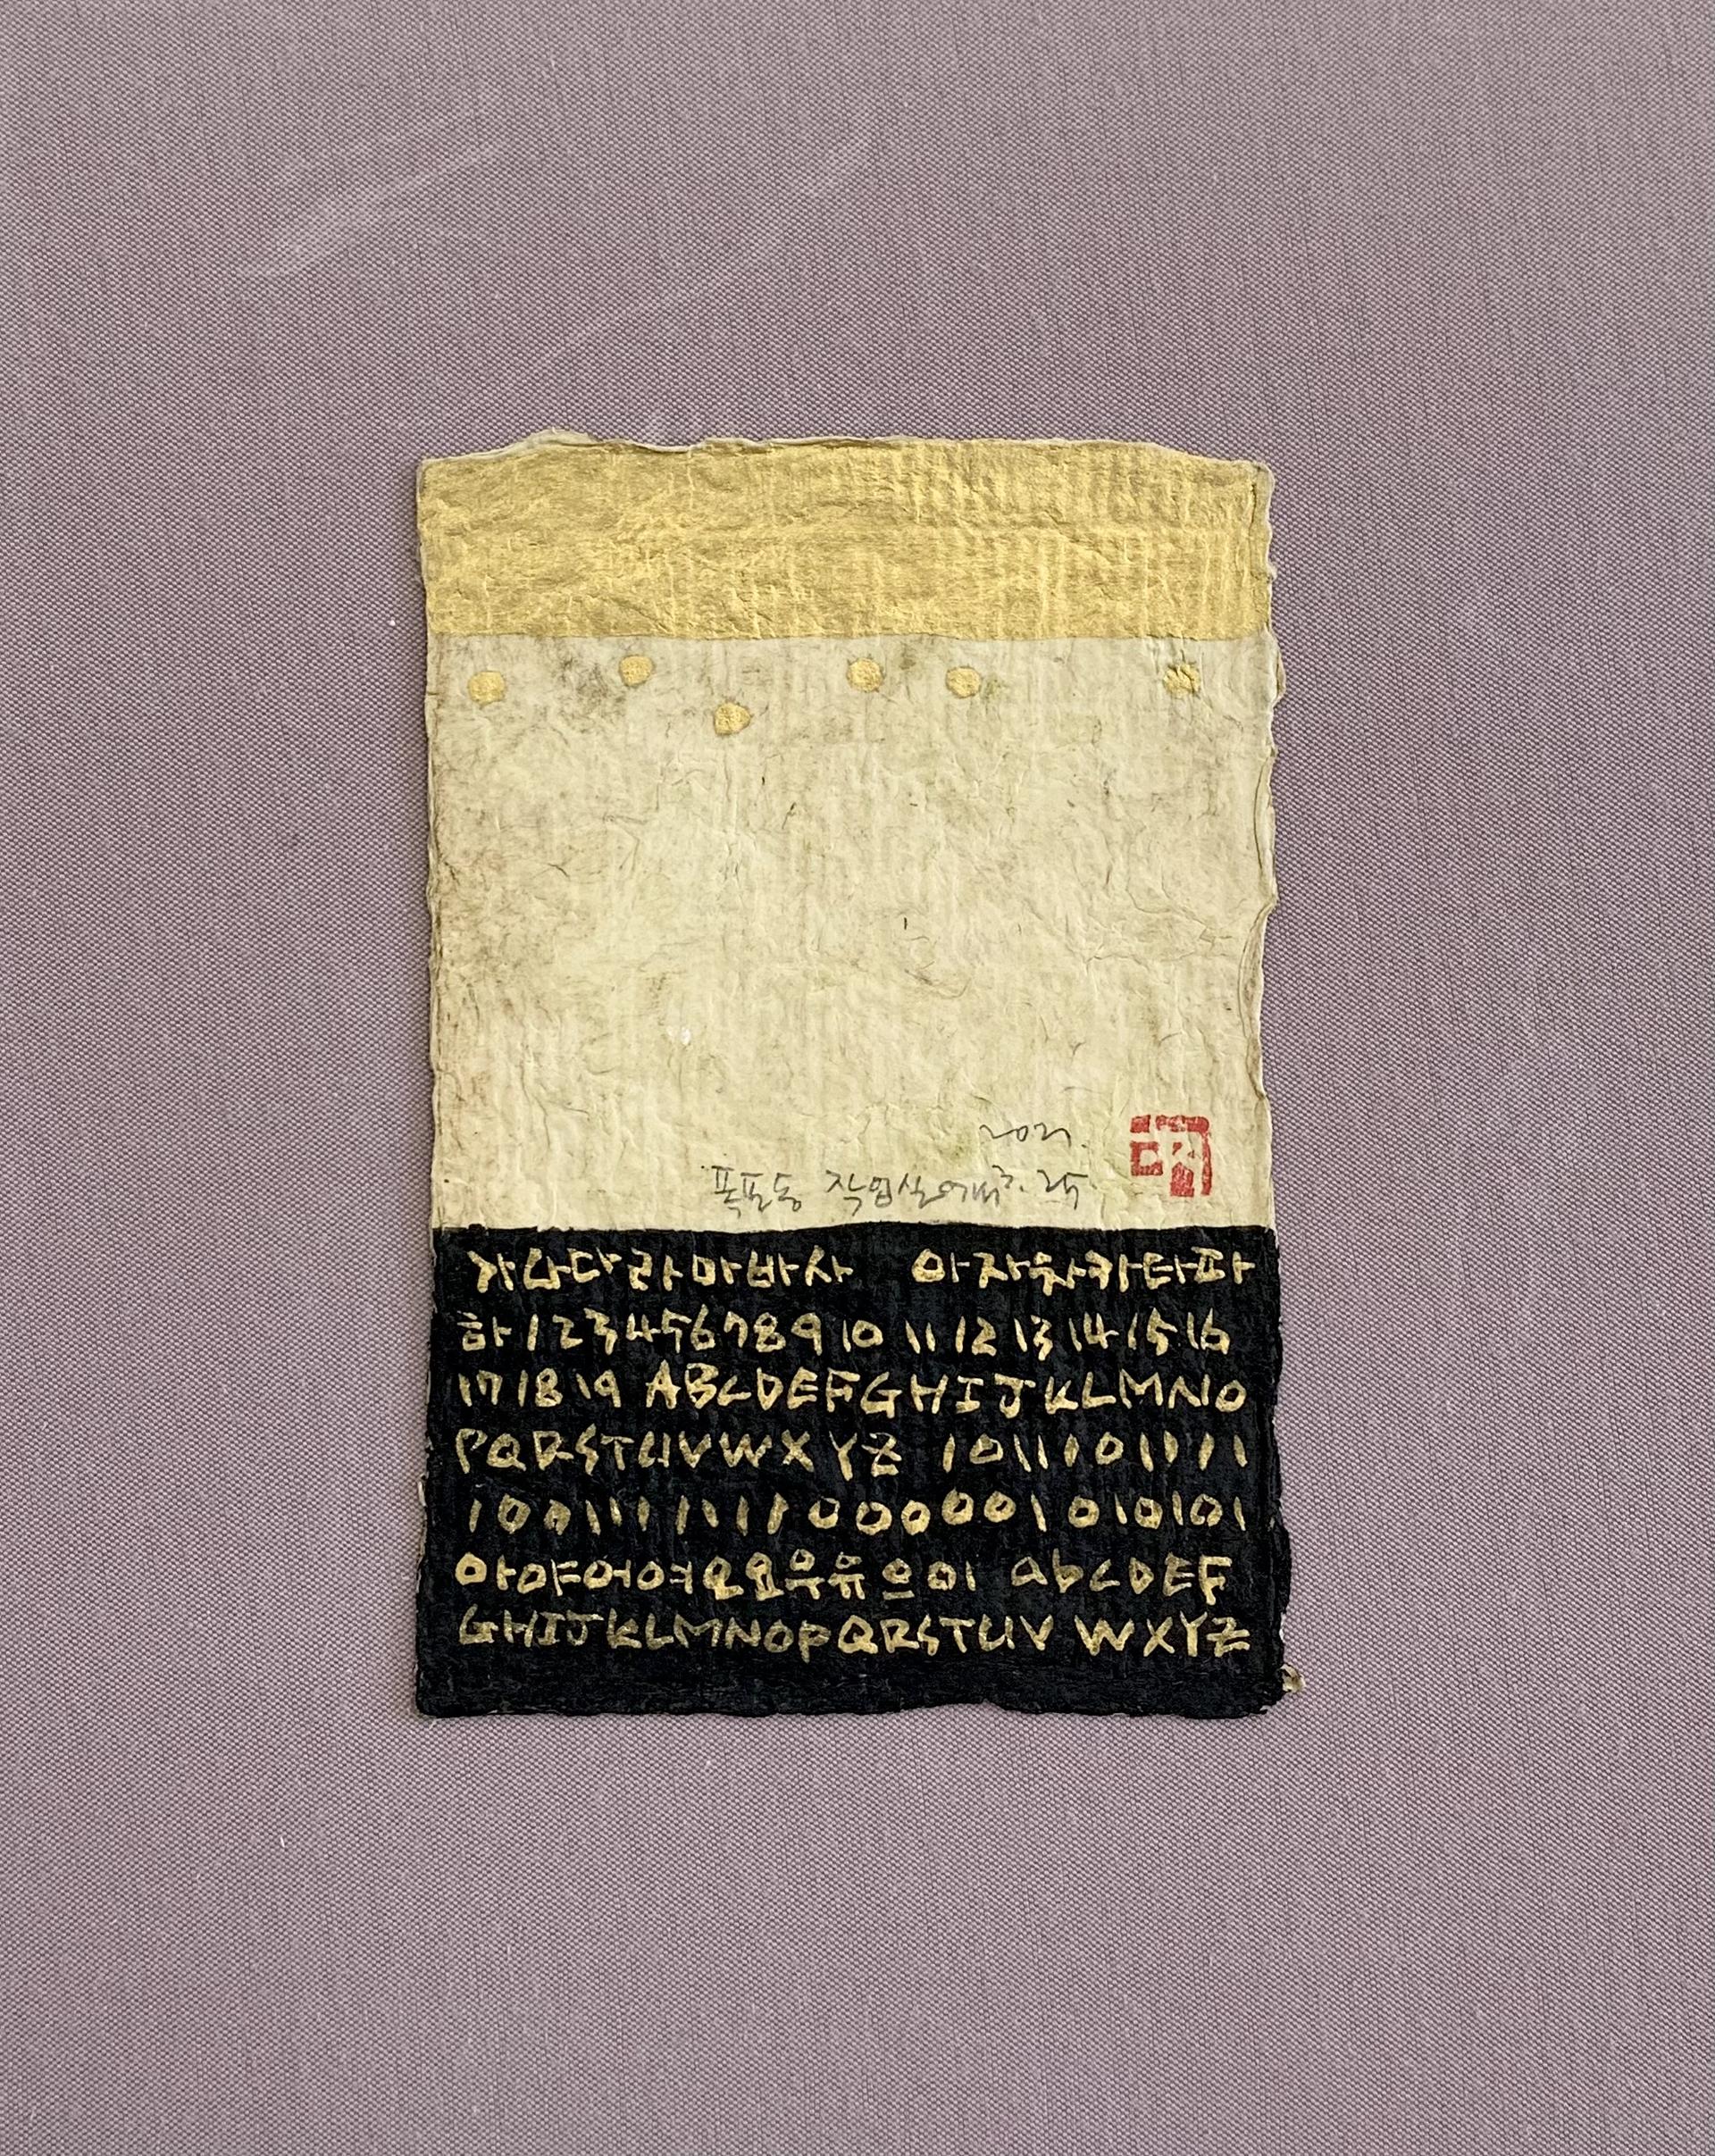 2021.
작업실에서
가나다라마바사 아자차카타파
하 1 2 3 4 5 6 7 8 9 10 11 12 13 14 15 16
17 18 19 ABCDEFGHIJKLMNO
PQRSTUVWXYZ 1011101111
아야어여오요우유으이 abcDEF
GHIJKLMNOPQRSTUV WXYZ